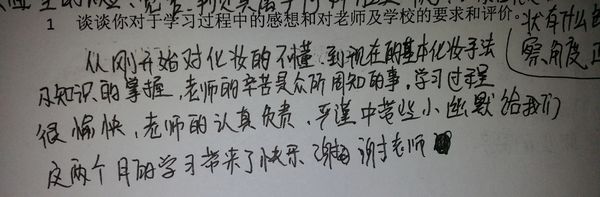 1 谈谈你对于学习过程中的感想和对老师及学校的要求和评价。
状有什么
察,角度,正
从刚开始对化妆的不懂,到现在的基本化妆手法
及知识的掌握,老师的辛苦是众所周知的事,学习过程
很愉快,老师的认真负责,严谨中带些小幽默给我们
这两个月的学习带来了快乐 谢谢老师